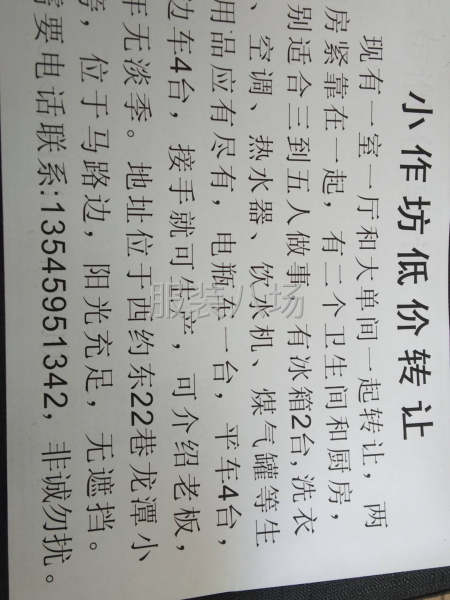 小作坊低价转让
现有一室一厅和大单间一起转让，两
房紧靠在一起，有二个卫生间和厨房，
别适合三到五人做事，有冰箱2台,洗衣
、空调、热水器、饮水机、煤气罐等生
用品应有尽有，电瓶车一台，平车4台，
边车4台，接手就可生产，可介绍老板，
年无淡季。地址位于西约东22巷龙潭小
，位于马路边，阳光充足，无遮挡。
需要电话联系:13545951342，非诚勿扰。
服装